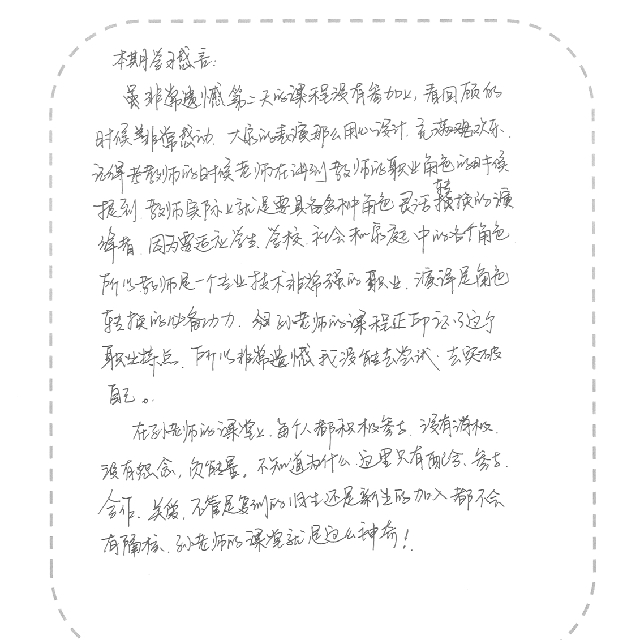 本期学习感言:
虽非常遗憾第二天的课程没有参加上,看回顾的
时候非常感动。大家的表演那么用心设计,充满欢乐。
记得考教师的时候老师在讲到教师的职业角色的时候
提到,教师实际上就是要具备多种角色灵活转换的演
绎者,因为要适应学生、学校、社会和家庭中的各个角色
所以教师是一个专业技术非常强的职业,演译是角色
转换的必备动力。但孙老师的课程正印证了这个
职业特点。所以非常遗憾我没能去尝试、去突破
自己。
在孙老师的课堂上,每个人都积极参与,没有消极,
没有怨念,负能量。不知道为什么这里只有配合、参与、
合作、关爱。不管是复训的旧生还是新生的加入都不会
有隔核。孙老师的课堂就是这么神奇!